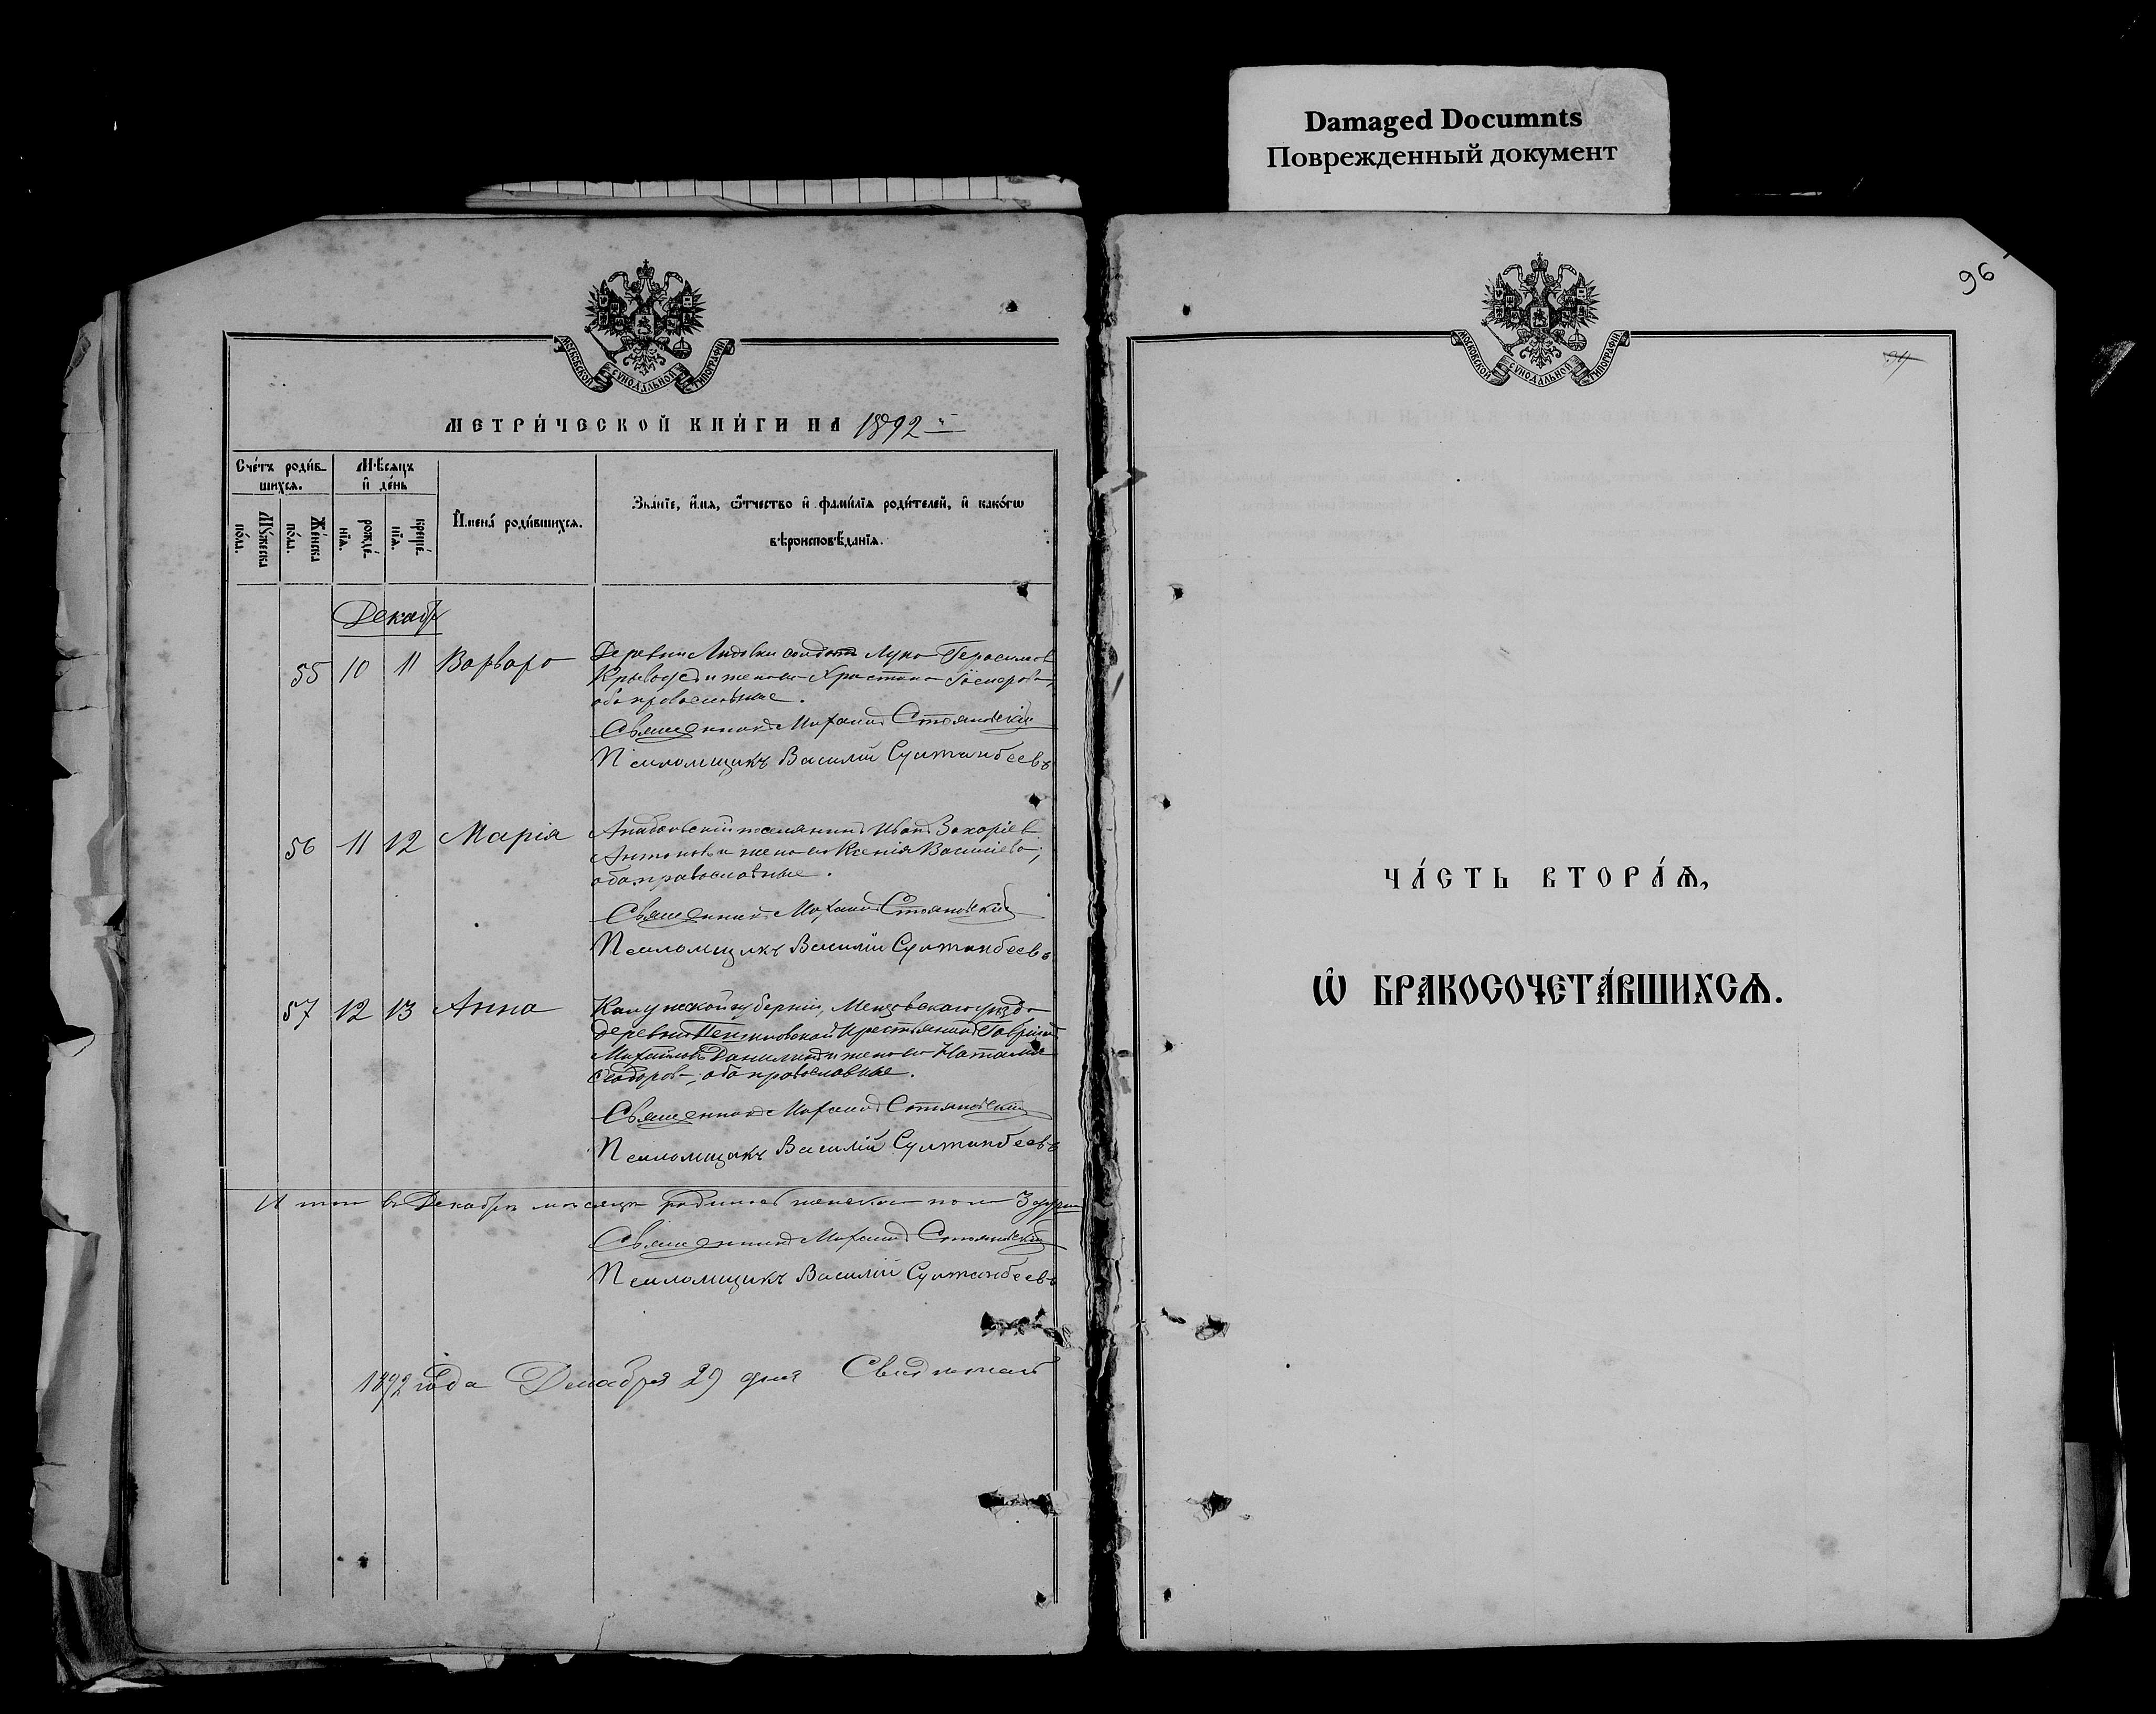 Damaged Documnts
Поврежденный документ
96
МОСКОВСКОЙ СѴНОДАЛЬНОЙ ТИПОГРАФІИ
МЕТРИ́ЧЕСКОЙ КНИ́ГИ НА 1892
Сче́тъ роди́в-
шихсѧ.
Мѣ́сѧцъ
и҆ де́нь
Мꙋ́жеска
по́ла.
Же́нска
по́ла.
рожде́-
нїѧ.
креще́-
нїѧ.
И҆мена̀ роди́вшихсѧ.
Зва́нїе, и҆́мѧ, ѻ҆́тчество и҆ фами́лїѧ роди́телей, и҆ како́гѡ
вѣроисповѣ́данїѧ.
Декабр
55 10 11 Варвара Деревни солдатъ Лука Герасимов
и жена его Христина
оба православные.
Священникъ Михаилъ Стояновскій
Псаломщикъ Василій Султанбеевъ
56 11 12 Марія поселянинъ Иванъ Захаріев
Антоновъ и жена его Ксенія Василіева;
оба православные.
Священникъ Михаилъ Стояновскій
Псаломщикъ Василій Султанбеевъ
57 12 13 Анна Калужской губерніи, уезда
деревни крестьянинъ Гавріилъ
Михайловъ и жена его Наталия
Ѳеодорова; оба православные.
Священникъ Михаилъ Стояновскій
Псаломщикъ Василій Султанбеевъ
Итого въ Декабрѣ мѣсяцѣ родилось женскаго пола 3
Священникъ Михаилъ Стояновскій
Псаломщикъ Василій Султанбеевъ
1892 года Декабря 29 дня
МОСКОВСКОЙ СѴНОДАЛЬНОЙ ТИПОГРАФІИ
ЧА́СТЬ ВТОРА́Ѧ,
Ѡ҆ БРАКОСОЧЕТА́ВШИХСѦ.